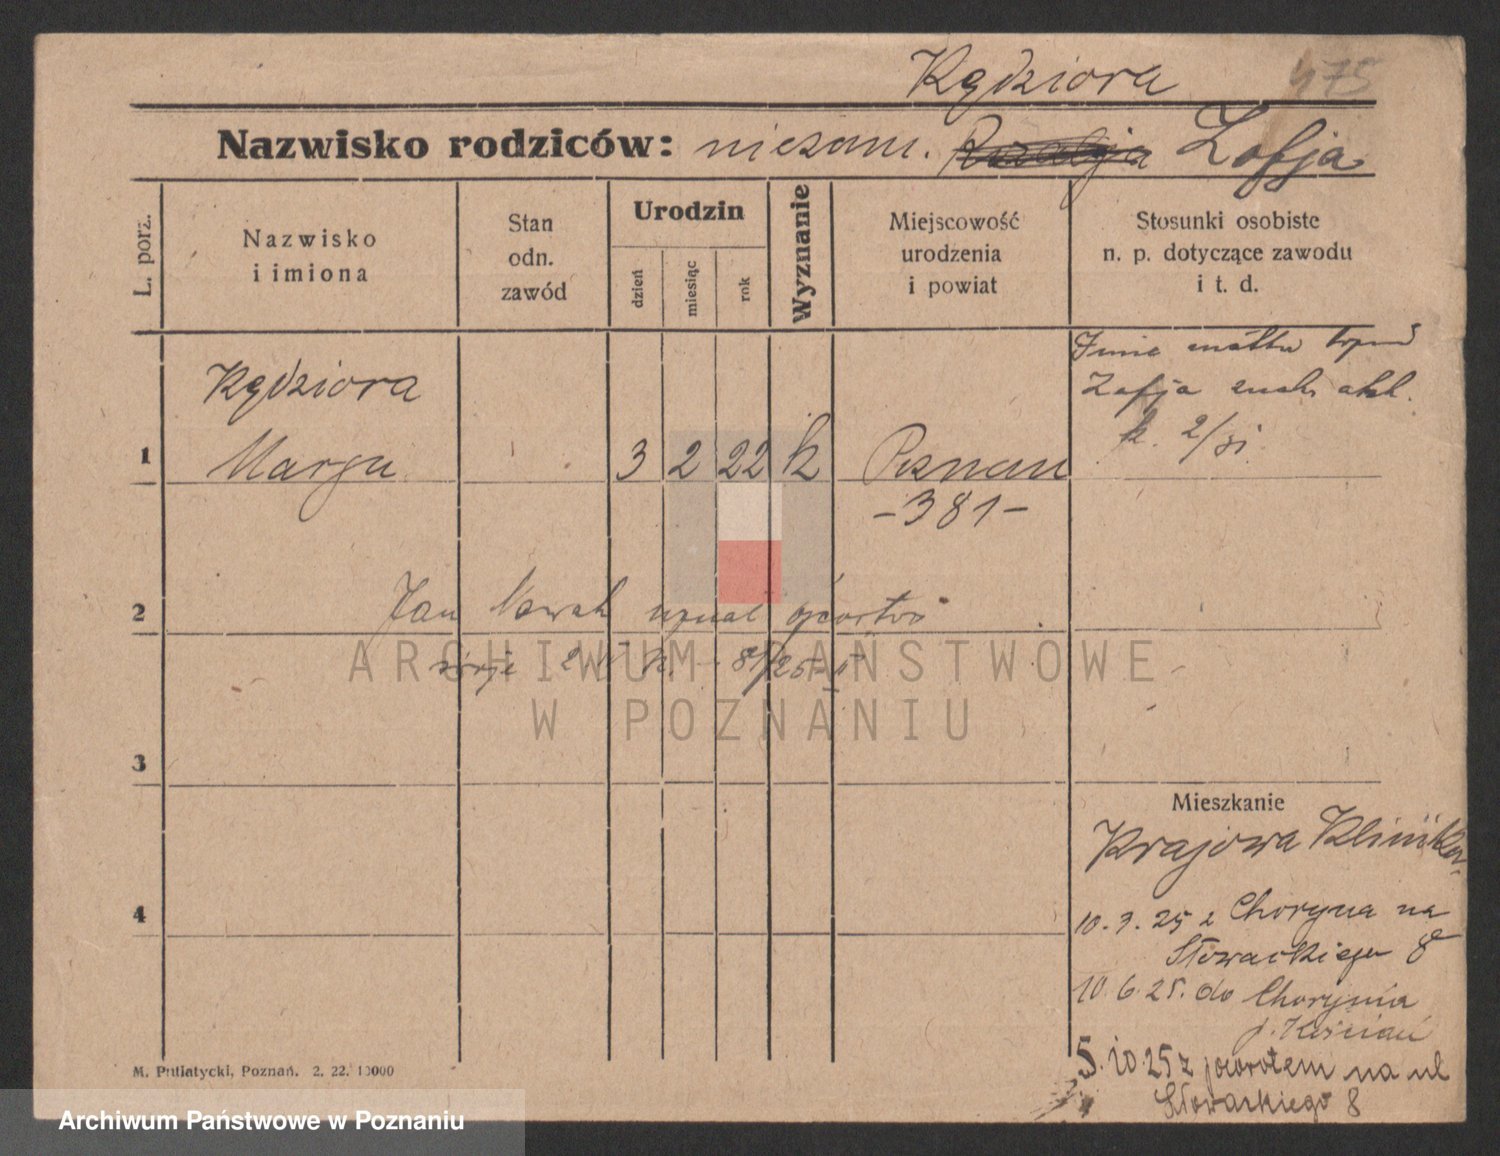 Kędziora
475
Nazwisko rodziców: niezam. Zofja
L. porz.
Nazwisko
i imiona
Stan
odn.
zawód
Urodzin
dzień
miesiąc
rok
Wyznanie
Miejscowość
urodzenia
i powiat
Stosunki osobiste
n. p. dotyczące zawodu
i t. d.
Imię matki
Zofja
k. 2/31
Kędziora
1 Marja 3 2 22 k Poznań
-381-
2 Jan Nowak uznał ojcostwo
3
4
Mieszkanie
Krajowa Klinika
10.3.25 z Choryna na
Słowackiego 8
10.6.25. do Chorynia
p. Kościan
5.10.25 z powrotem na ul
Słowackiego 8
M. Putiatycki, Poznań. 2. 22. 10000
ARCHIWUM PAŃSTWOWE
W POZNANIU
Archiwum Państwowe w Poznaniu